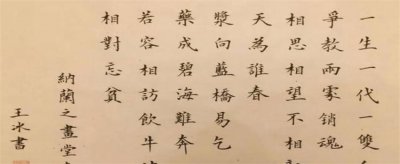 一生一代一雙
爭教兩處銷魂
相思相望不相
天為誰春
漿向藍橋易乞
藥成碧海難奔
若容相訪飲牛
相對忘貧
納蘭之畫堂
王冰書